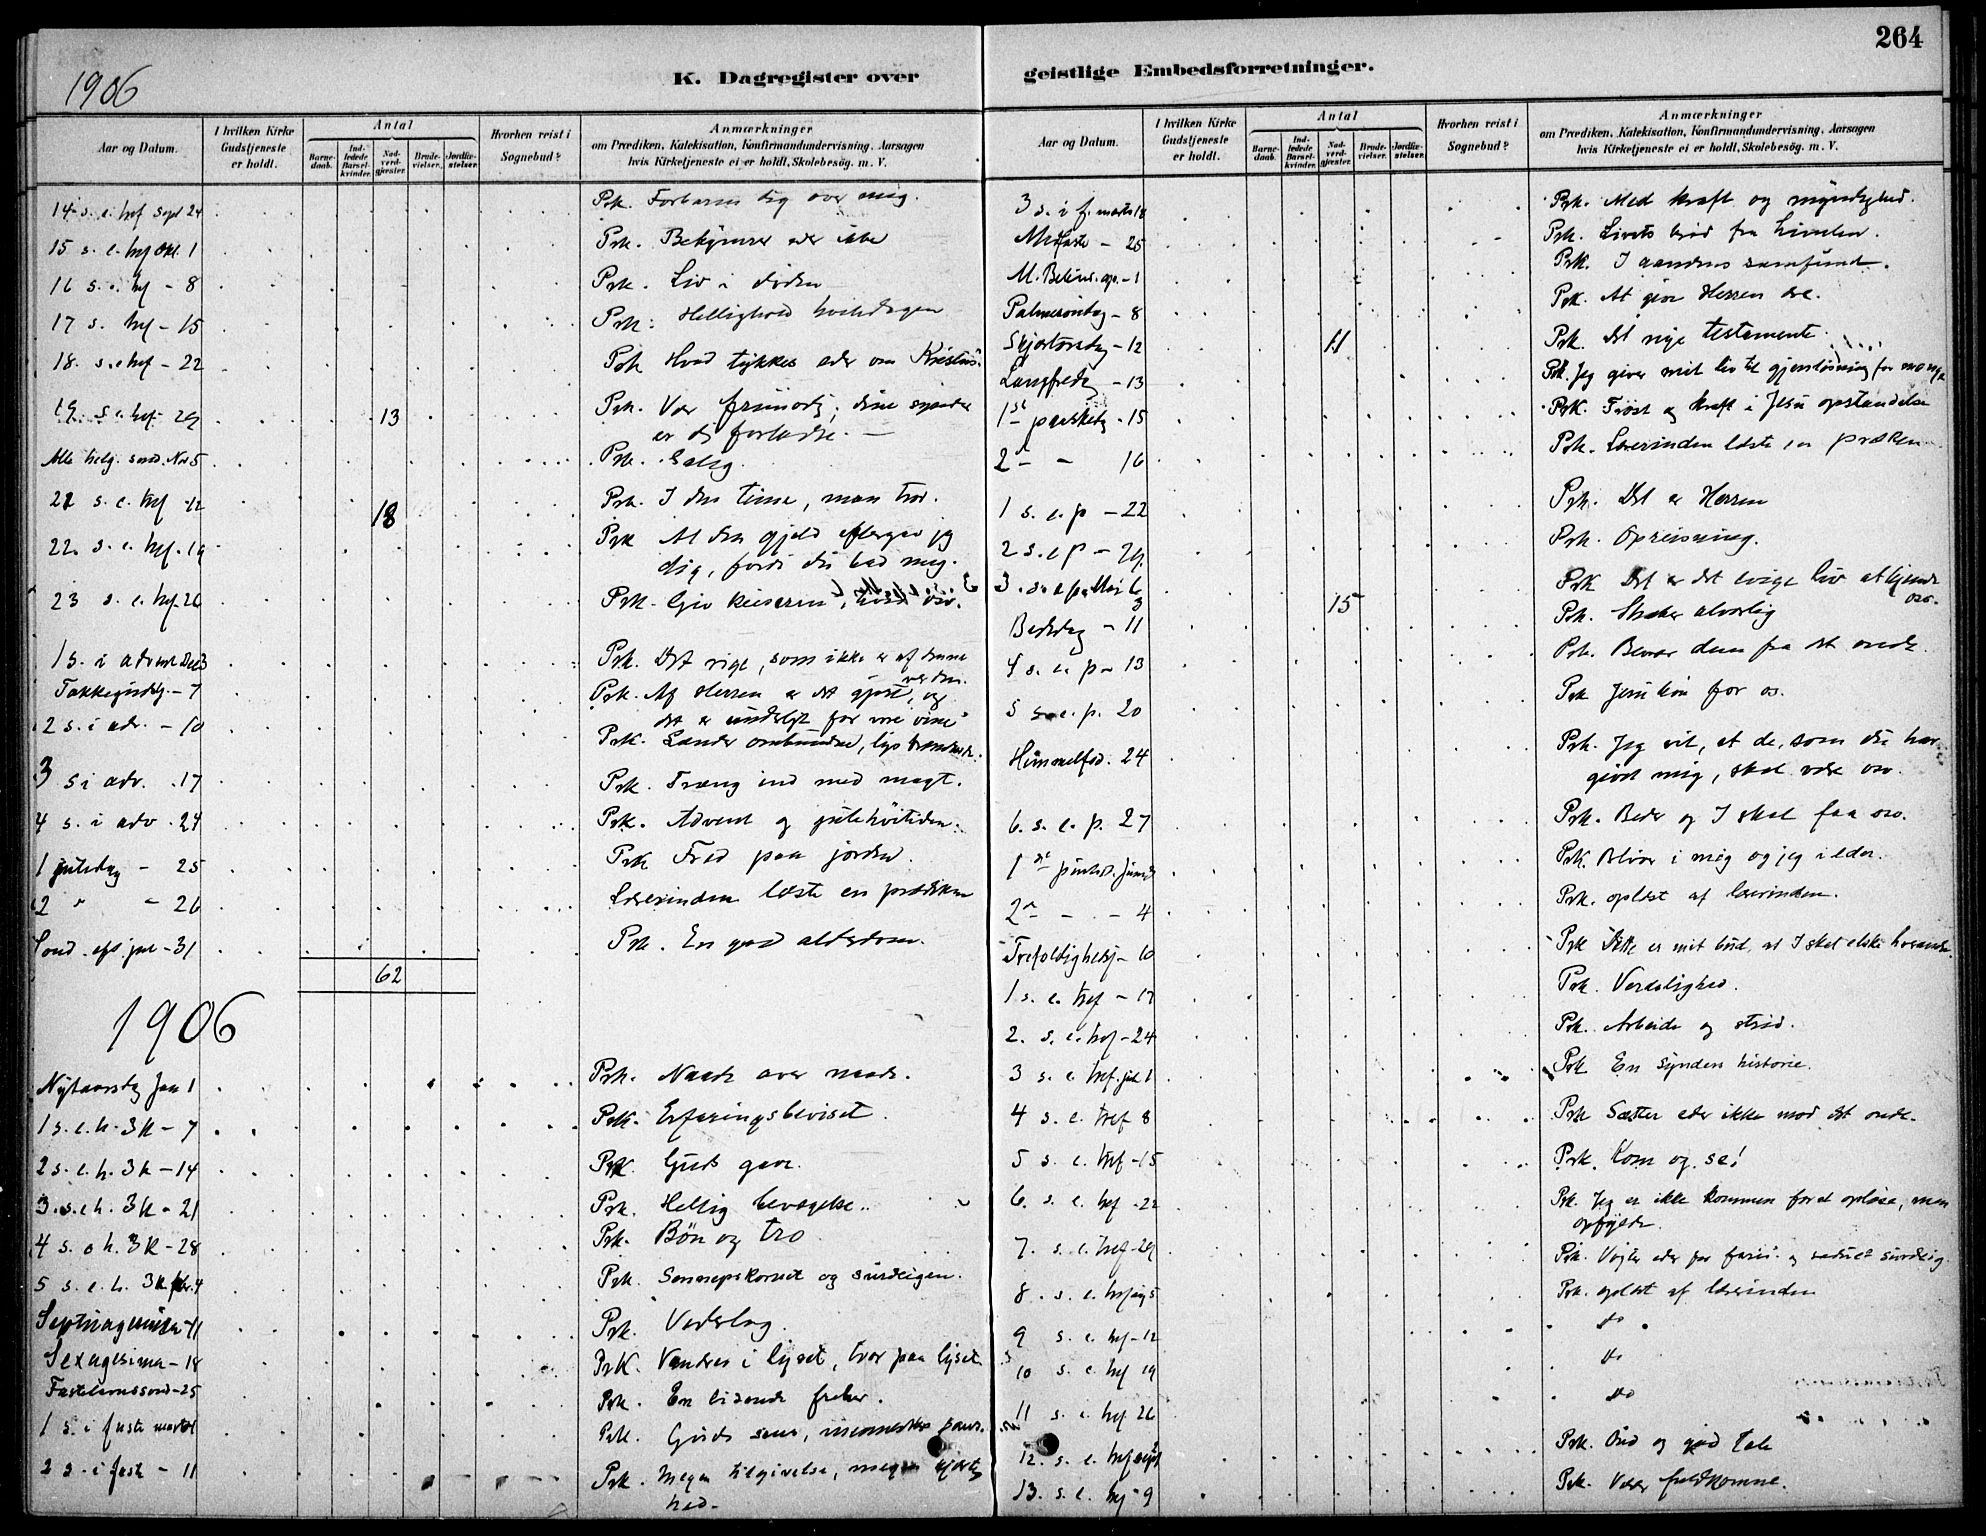 264
1906
K. Dagregister over
Aar og Datum.
I hvilken Kirke Gudstjeneste er holdt.
Antal
Barne-daab.
Ind-ledede Barsel-kvinder.
Nad-verd-gjæster.
Brude-vielser.
Jordfæ-stelser.
Hvorhen reist i Sognebud?
Anmærkninger
om Prædiken, Katekisation, Konfirmandundervisning, Aarsagen
hvis Kirketjeneste ei er holdt, Skolebesøg. m. V.
14 s. e. tref Sept 24 Prk. Forbarm dig over mig.
15 s. e. tref Okt. 1 Prk. Bekymrer eder ikke
16 s. e. tref - 8 Prk. Liv i døden
17 s. tref - 15 Prk. Hellighed hviledagen
18. s. e. tref - 22 Prk Hvad tykkes eder om Kristus.
19. s. e. tref - 29 13 Prk. Vær frimodig; dine synder
er dig forladte. —
Alle helg. sønd. Nov 5 Prk. Salig.
21 s. e. tref - 12 18 Prk. I den time, man tror.
22. s. e. tref. 19 Prk Al den gjeld eftergav jeg
dig, fordi du bad mig.
23 s. e. tref. 26 Prk. Giv keiseren osv.
1 s. i advent Dec 3 Prk. Det rige, som ikke er af denne
verden.
Takkegudstj. - 7 Prk. Af Herren er det gjort, og
det er underligt for vore øine
2 s. i adv. - 10 Prk. Lænder ombundne, lys brændende.
3 s i adv. . 17 Prk. Træng ind med magt.
4 s. i adv . 24 Prk. Advent og julehøitiden.
1 juledag - 25 Prk Fred paa jorden.
2 " - 26 Lærerinden læste en prædiken
Sønd. eft. jul - 31 Prk. En god alderdom.
62
1906
Nytaarsdag Jan 1 Prk. Naade over naade.
1 s. e. h. 3 K - 7 Prk. Erfaringsbeviset.
2 s. e. h. 3 K - 14 Prk Guds gave.
3. s. e h. 3 K - 21 Prk. Hellig bevægelse.
4 s. e h. 3 K - 28 Prk. Bön og tro
5 s. e. h. 3 K feb. 4 Prk. Sennepskornet og surdeigen.
Septuagesima - 11 Prk. Vederlag.
Sexagesima - 18 Prk. Vandrer i lyset, tror paa lyset
Fastelavnssønd - 25 Prk. En lidende frelser.
1 s. i faste marts 4 Prk. Guds sønn,
2 s. i faste - 11 Prk. Megen tilgivelse, megen kjærlig
hed.
geistlige Embedsforretninger.
Aar og Datum.
I hvilken Kirke Gudstjeneste er holdt.
Antal
Barne-daab.
Ind-ledede Barsel-kvinder.
Nad-verd-gjæster.
Brude-vielser.
Jordfæ-stelser.
Hvorhen reist i Sognebud?
Anmærkninger
om Prædiken, Katekisation, Konfirmandundervisning, Aarsagen
hvis Kirketjeneste ei er holdt, Skolebesøg. m. V.
3 s. i f. marts 18 Prk. Med kraft og myndighed.
Midfaste - 25 Prk. Livets brød fra himlen.
M. Bebud. apr. - 1 Prk. I aandens samfund.
Palmesøndag - 8 Prk. At give Herren ære.
Skjærtorsdag - 12 11 Prk. Det nye testamente
Langfredag - 13 Prk. Jeg giver mit liv til gjenløsning for mange
1ste paaskedag - 15 Prk. Trøst og kraft i Jesu opstandelse
2 - - 16 Prk. Lærerinden læste en præken
1 s. e. p - 22 Prk. Det er Herren
2 s. e p - 29. Prk. Opreisning.
3. s. e p. Mai 6 Prk Det er det evige liv at kjende
osv.
Bededag - 11 15 Prk. Stræber alvorlig
4 s. e. p - 13 Prk. Bevar dem fra det onde.
5 s. e. p. 20 Prk Jesu bön for os.
Himmelfad. 24 Prk. Jeg vil, at de, som du har
givet mig, skal være osv.
6. s. e. p. 27 Prk. Beder og I skal faa osv.
1ste pintsd. Juni 3 Prk. Bliver i mig og jeg i eder.
2 - - - 4 Prk. oplæst af lærerinden.
Trefoldighedsf - 10 Prk Dette er mit bud at I skal elske hverandre.
1 s. e. tref - 17 Prk. Verdslighed.
2. s. e. tref - 24 Prk. Arbeide og strid.
3 s. e. tref. juli 1 Prk En synders historie.
4 s. e. tref 8 Prk Sætter eder ikke mod det onde.
5 s. e. tref - 15 Prk. Kom og se!
6. s. e. tref - 22 Prk. Jeg er ikke kommen forat opløse, men
opfylde.
7. s. e. tref - 29 Prk. Vogter eder for faris. og saduc surdeig.
8. s. e. tref aug 5 Prk. oplæst af lærerinden
9 s. e. tref - 12 do
10 s. e. tref 19 do
11 s. e. tref 26 do
12. s. e. tref sept 2 Prk. Ond og god tale
13. s. e. tref - 9 Prk. Være fuldkomne.